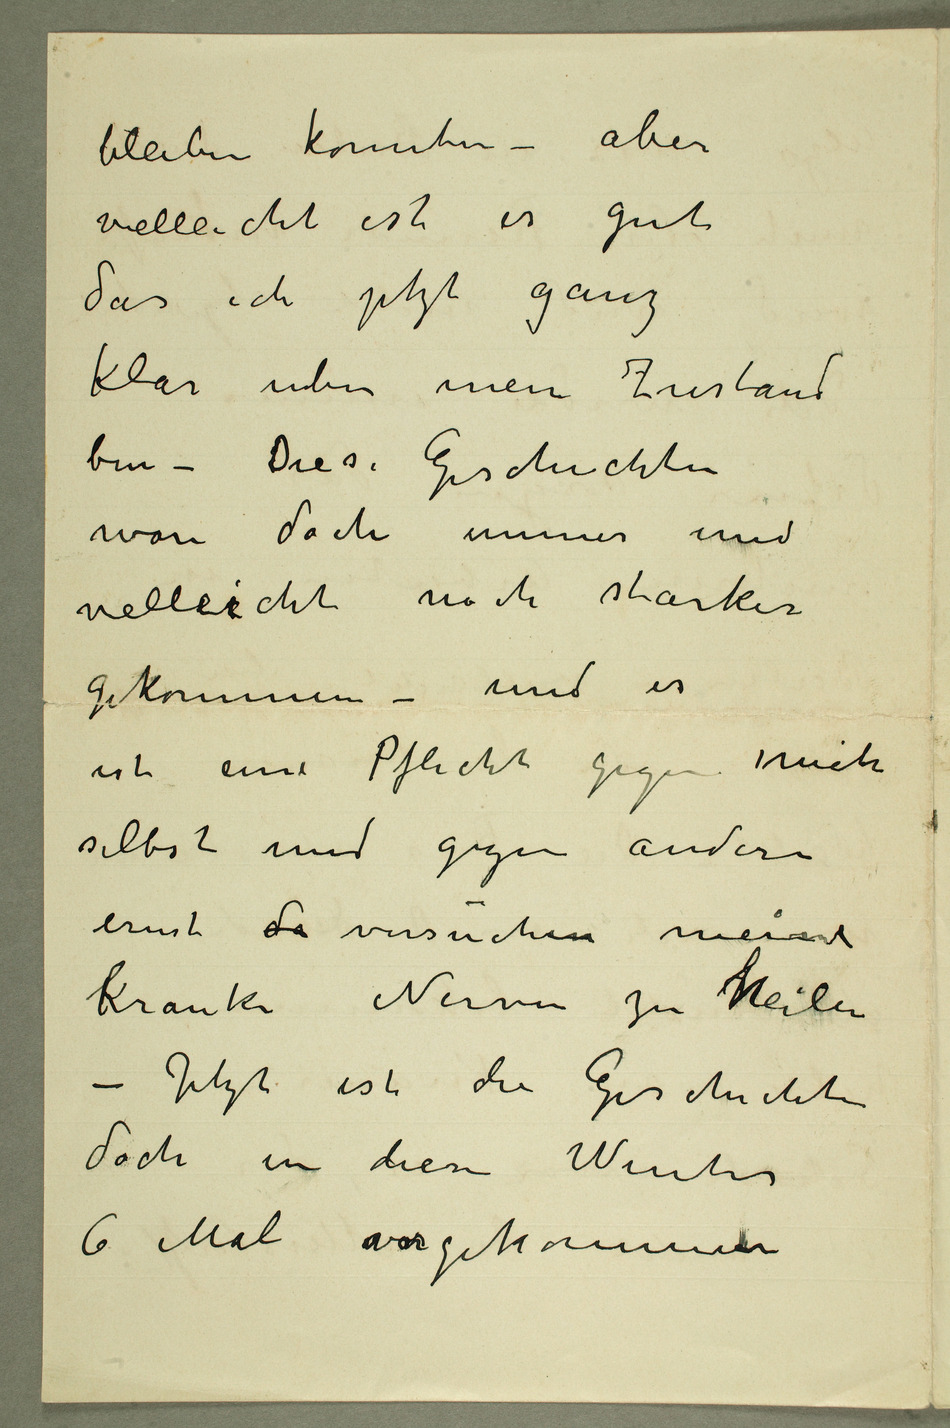 bleiben konnten – aber
vielleicht ist es gut
das ich jetzt ganz
klar uber mein Zustand
bin – Diese Geschichten
waren doch immer und
velleicht noch starker
gekommen – und es
ist eine Pflicht gegen mich
selbst und gegen andern
ernst da versuchen meine
kranke Nerven zu heilen
– Jetzt ist die Geschichten
doch in diesen Winter
6 Mal vorgekommen